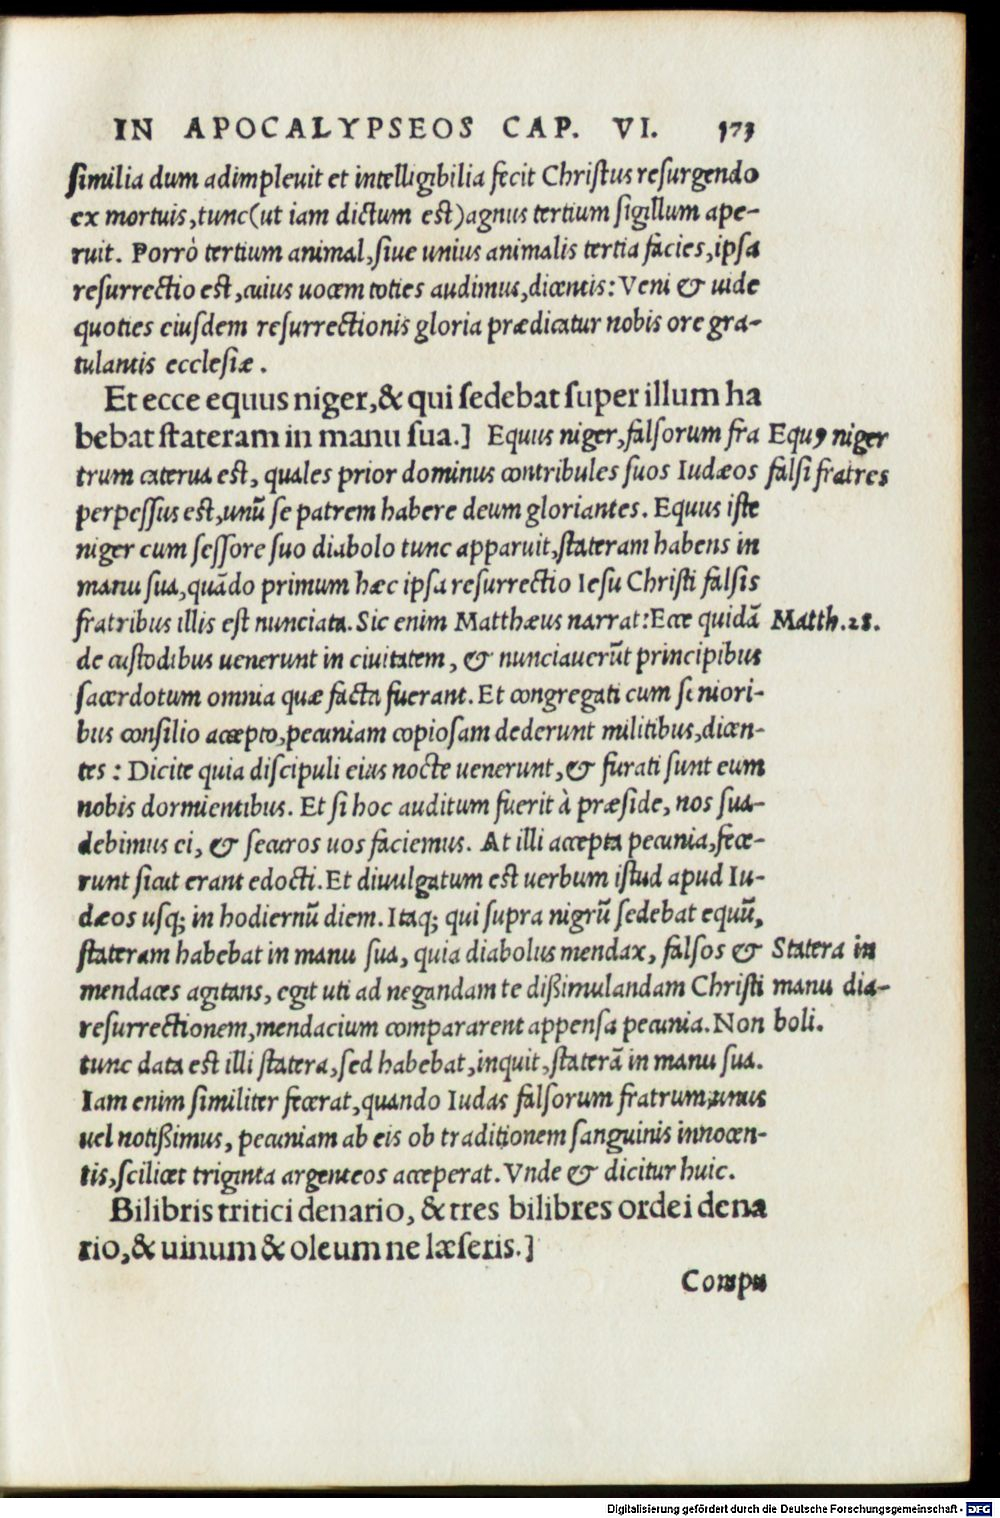 IN APOCALYPSEOS CAP. VI. 173
similia dum adimpleuit et intelligibilia fecit Christus resurgendo
ex mortuis, tunc (ut iam dictum est) agnus tertium sigillum ape-
ruit. Porrò tertium animal, siue unius animalis tertia facies, ipsa
resurrectio est, cuius uocem toties audimus, dicentis: Veni & uide
quoties eiusdem resurrectionis gloria prædicatur nobis ore gra-
tulantis ecclesiæ.
Et ecce equus niger, & qui sedebat super illum ha
bebat stateram in manu sua.] Equus niger, falsorum fra
Equꝰ niger
trum caterua est, quales prior dominus contribules suos Iudæos
falsi fratres
perpessus est, unũ se patrem habere deum gloriantes. Equus iste
niger cum sessore suo diabolo tunc apparuit, stateram habens in
manu sua, quãdo primum hæc ipsa resurrectio Iesu Christi falsis
fratribus illis est nunciata. Sic enim Matthæus narrat: Ecce quidã
Matth. 28.
de custodibus uenerunt in ciuitatem, & nunciauerũt principibus
sacerdotum omnia quæ facta fuerant. Et congregati cum seniori-
bus consilio accepto, pecuniam copiosam dederunt militibus, dicen-
tes: Dicite quia discipuli eius nocte uenerunt, & furati sunt eum
nobis dormientibus. Et si hoc auditum fuerit à præside, nos sua-
debimus ei, & securos uos faciemus. At illi accepta pecunia, fece-
runt sicut erant edocti. Et diuulgatum est uerbum istud apud Iu-
dæos usq; in hodiernũ diem. Itaq; qui supra nigrũ sedebat equũ,
stateram habebat in manu sua, quia diabolus mendax, falsos &
Statera in
mendaces agitans, egit uti ad negandam te dißimulandam Christi
manu dia-
resurrectionem, mendacium compararent appensa pecunia. Non
boli.
tunc data est illi statera, sed habebat, inquit, staterã in manu sua.
Iam enim similiter fecerat, quando Iudas falsorum fratrum, unus
uel notißimus, pecuniam ab eis ob traditionem sanguinis innocen-
tis, scilicet triginta argenteos acceperat. Vnde & dicitur huic.
Bilibris tritici denario, & tres bilibres ordei dena
rio, & uinum & oleum ne læseris.]
Compu
Digitalisierung gefördert durch die Deutsche Forschungsgemeinschaft - DFG